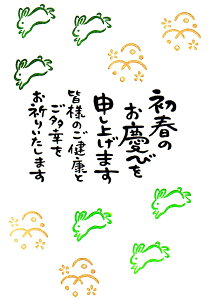 初春の
お慶びを
申し上げます
皆様のご健康と
ご多幸を
お祈りいたします